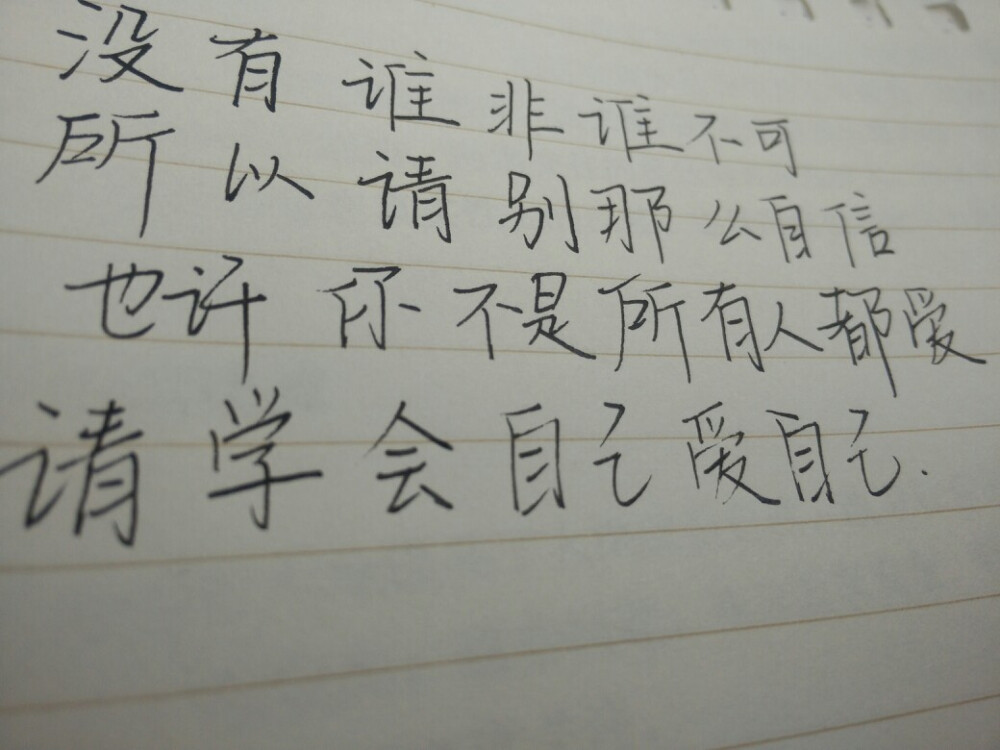 没有谁非谁不可
所以请别那么自信
也许你不是所有人都爱
请学会自己爱自己.